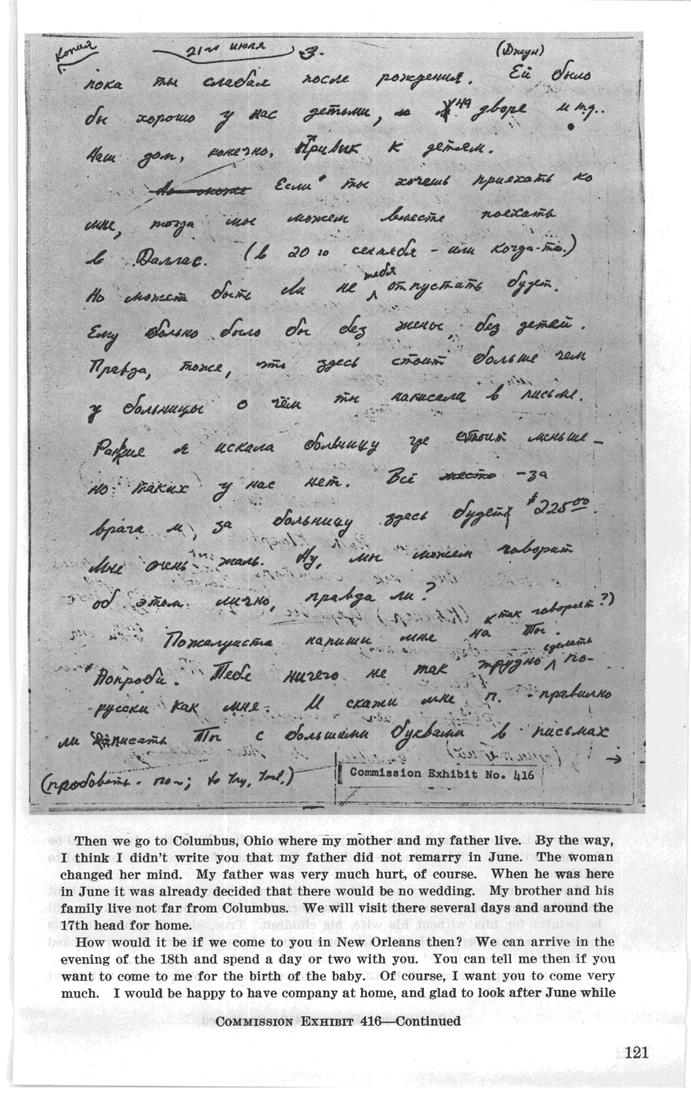 Копия
21го июля 3. (Джун)
пока ты слабая после рождения. Ей было
бы хорошо у нас детьми, на дворе и тд..
Наш дом, конечно, привык к детям.
Но може Если ты хочешь приехать ко
мне, тогда мы можем вместе поехать
в Даллас. (в 20го сентября - или когда-то.)
тебя
Но может быть Ли не отпустить будет.
Ему больно было бы без жены, без детей.
Правда, тоже, что здесь стоит больше чем
у больницы о чём ты написала в письме.
Раньше я искала больницу где стоит меньше -
но таких у нас нет. Всё - за
врача и, за больницу здесь будет $225.00.
Мне очень жаль. Ну, мы можем говорит
об этом лично, правда ли?
(так говорят?)
Пожалуиста напиши мне на Ты.
сделать
*Попробй. Тебе ничего не так трудно по-
русски как мне. И скажи мне п. - правилно
ли написать Ты с большими буквами в письмах
(пробовать - по-; to try, test.)
Commission Exhibit No. 416
Then we go to Columbus, Ohio where my mother and my father live. By the way,
I think I didn't write you that my father did not remarry in June. The woman
changed her mind. My father was very much hurt, of course. When he was here
in June it was already decided that there would be no wedding. My brother and his
family live not far from Columbus. We will visit there several days and around the
17th head for home.
How would it be if we come to you in New Orleans then? We can arrive in the
evening of the 18th and spend a day or two with you. You can tell me then if you
want to come to me for the birth of the baby. Of course, I want you to come very
much. I would be happy to have company at home, and glad to look after June while
COMMISSION EXHIBIT 416—Continued
121